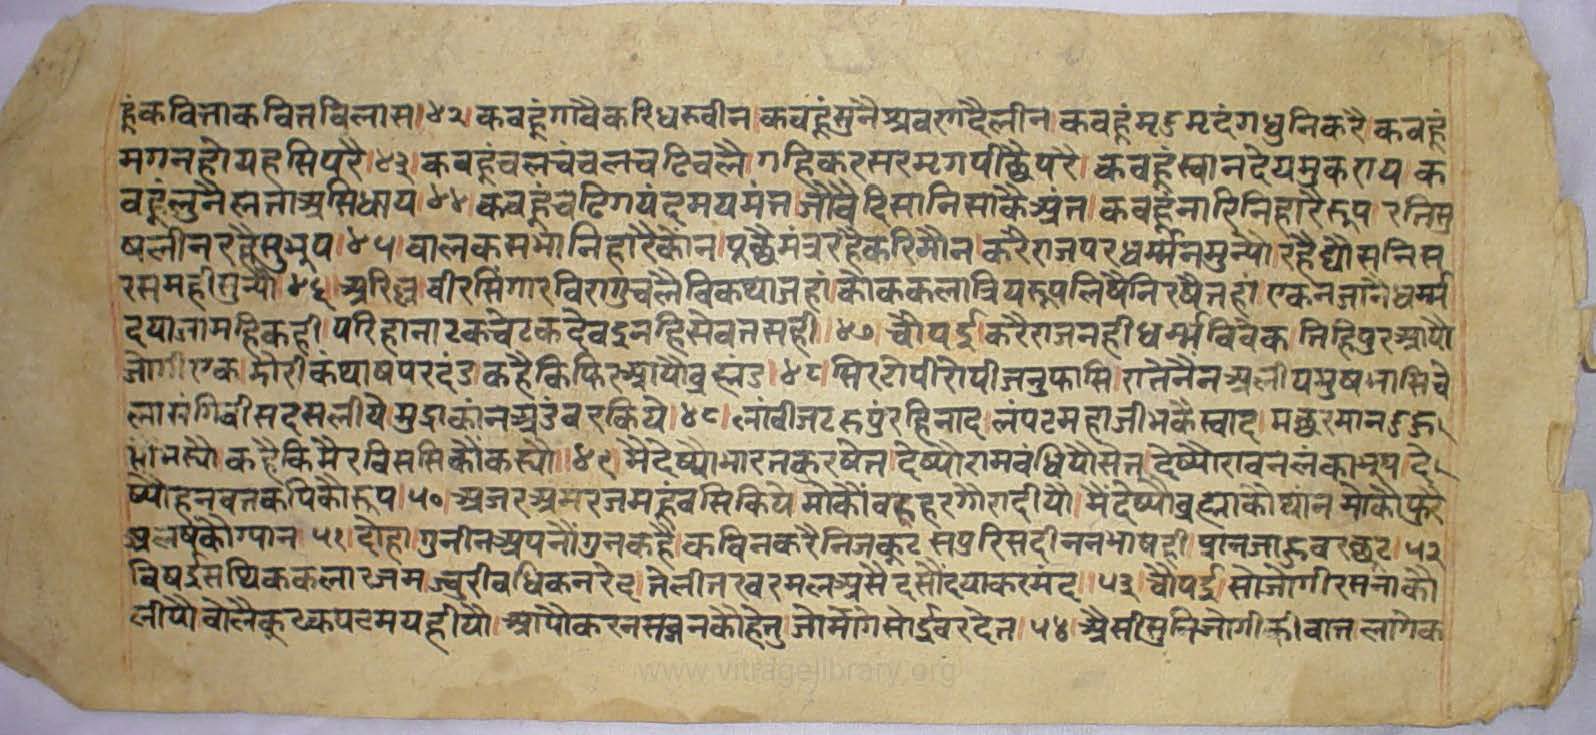 हूंकवित्ताकवित्तविलास।४२।कबहूंगावैकरिधरुवीन।कबहूंसुंनैश्रवरगदैलीन।कबहूंमृडमृदंगधुनिकरै।कबहूं
मगनहोयहसिपरै।४३।कबहूंचलचंचलचढिचलै।गहिकरसरमृगपीछैपरै।कबहूंस्वानदेयमुकराय।क
बहूंलुनैलताअसिधाय।४४।कबहूंचढिगयंदमयमंत।जौवैदिसानिसाकैअंत।कबहूंनारिनिहारैरूप।रतिसु
षलीनरहैसुभूप।४५।बालकसभानिहारैकोंन।पूछैमंत्ररहैकरिमौन।करैराजपरधर्म्मनसुन्यो।रहैद्यौसनिस
रसमहीगुन्यौ।४६।अरिल्ल।बीरसिंगारविरागुचलैविकथाजहां।कोककलात्रियरूपलिषैनिरषैतहां।एकनजांनैधर्म्म
दयाजामहिकही।परिहांनाटकचेटकदेवदुनहिसेवतसही।।४७।चौपई।करैराजनहीधर्म्मविवेक।तिहिपुरआयौ
जोगीएक।गोरीकंथाषपरदंड।कहैकिफिरआयौब्रह्मंड।४८।सिरटोपीरोपीजनुफासि।रातेनैनअलीपमुषभासि।चे
लासंगिबीसदसलीये।मुद्राकांनअडंबरकिये।४८।लांबीजटरुप्रंरहिनाद।लंपटमहाजीभकैस्वाद।मछरमान
कहैकिमैरविससिकौंकस्यौ।।४९।मैदेष्यौभारतकुरषेत।देष्यौरामबंधियौसेत।देष्यौरावनलंकाभूप।दे
ष्यौहनवंतकपिकौरूप।५०।अजरअमरजमहूंबसिकिये।मोकौंवहूहरगौरादीयौ।मैंदेष्यौब्रह्माकौध्यांन।मोकौफुरै
अलषकौग्यान।५१।दोहा।गुनीनअपनौंगुनकहै।कबिनकरैनिजकूट।सपुरिसदीननभाषही।प्रानजाहुबरछूट।५२
बिषईसथिककलारजमज्वरीबधिकनरेद।तेलीतस्वरमलअसैदसौंदयाकरमंद।।५३।चौपई।सोजोगीरसनाकौ
लीयौ।बोलैकूटकपटमयहीयौ।आयौकरनसबनकौहेतु।जोमांगेसोईवरदेत।५४।अैसीसुनिजोगीकीबात।लागेक
www.vitragelibrary.org